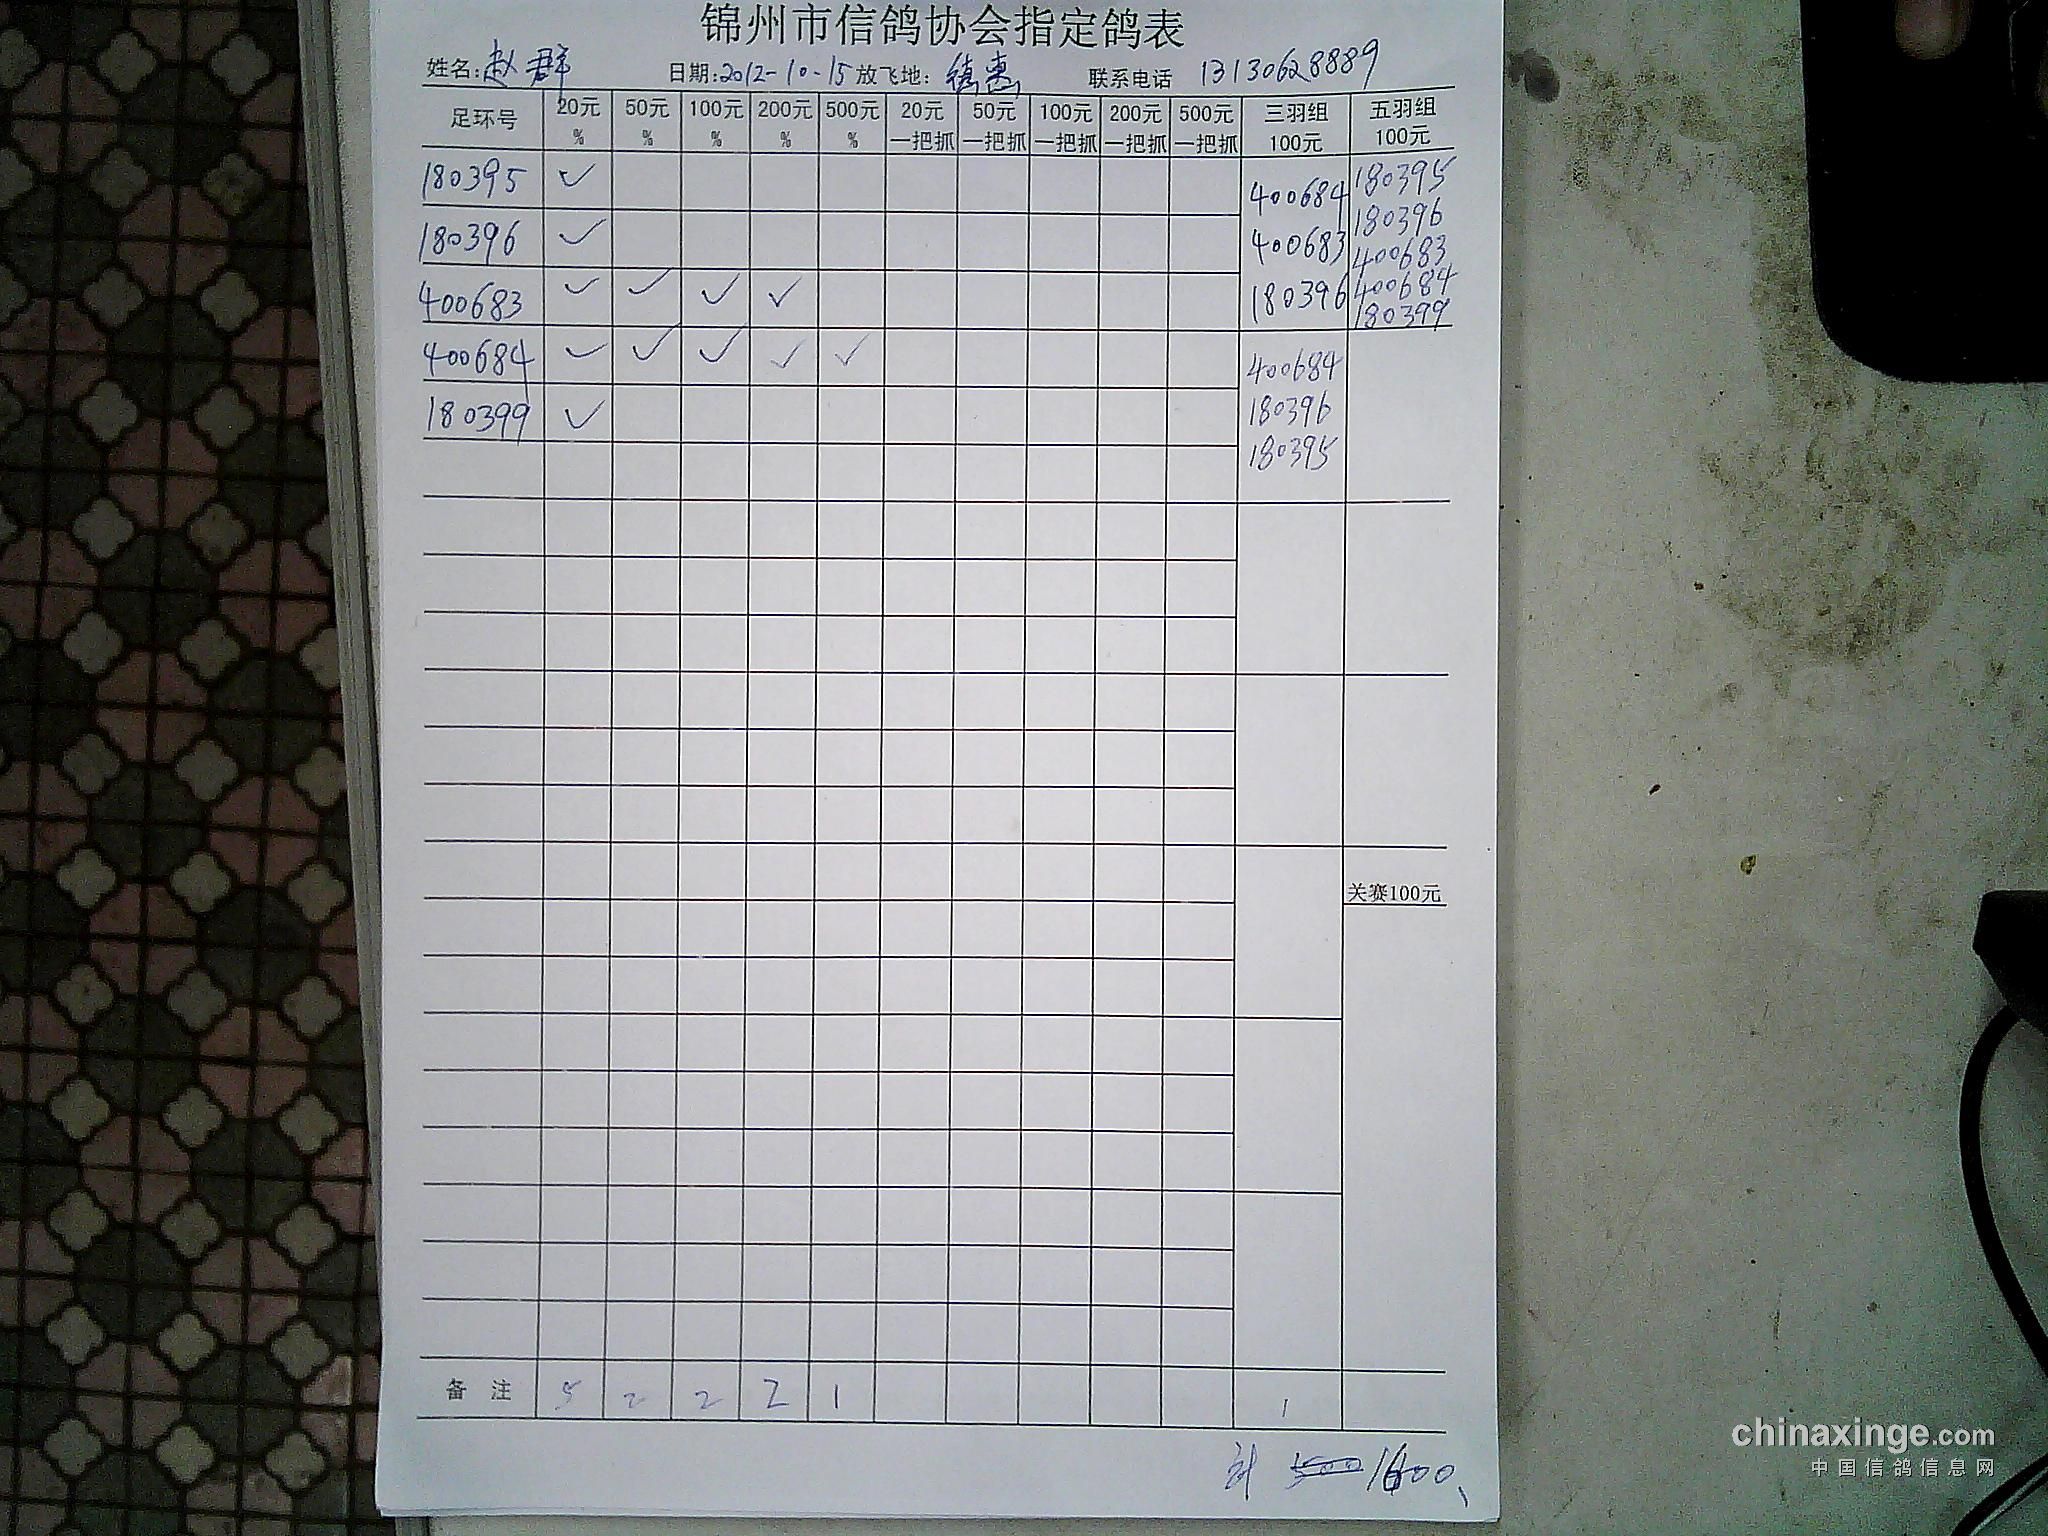 锦州市信鸽协会指定鸽表
姓名: 赵群 日期: 2012-10-15 放飞地: 德惠 联系电话 13130628889
足环号 20元% 50元% 100元% 200元% 500元% 20元一把抓 50元一把抓 100元一把抓 200元一把抓 500元一把抓 三羽组100元 五羽组100元
180395 ✓
180396 ✓
400683 ✓ ✓ ✓ ✓
400684 ✓ ✓ ✓ ✓ ✓
180399 ✓
400684
400683
180396
400684
180396
180395
180395
180396
400683
400684
180399
关赛100元
备注 5 2 2 2 1 1
计 1600
chinaxinge.com
中国信鸽信息网